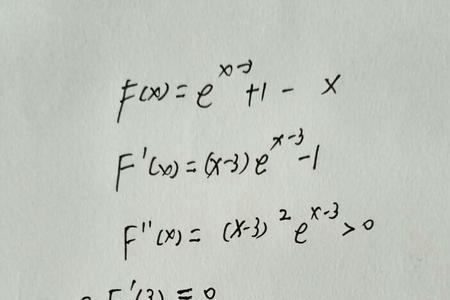 F(x) = e^{x-3} + 1 - x
F'(x) = (x-3) e^{x-3} - 1
F''(x) = (x-3)^2 e^{x-3} > 0
F'(3) = 0